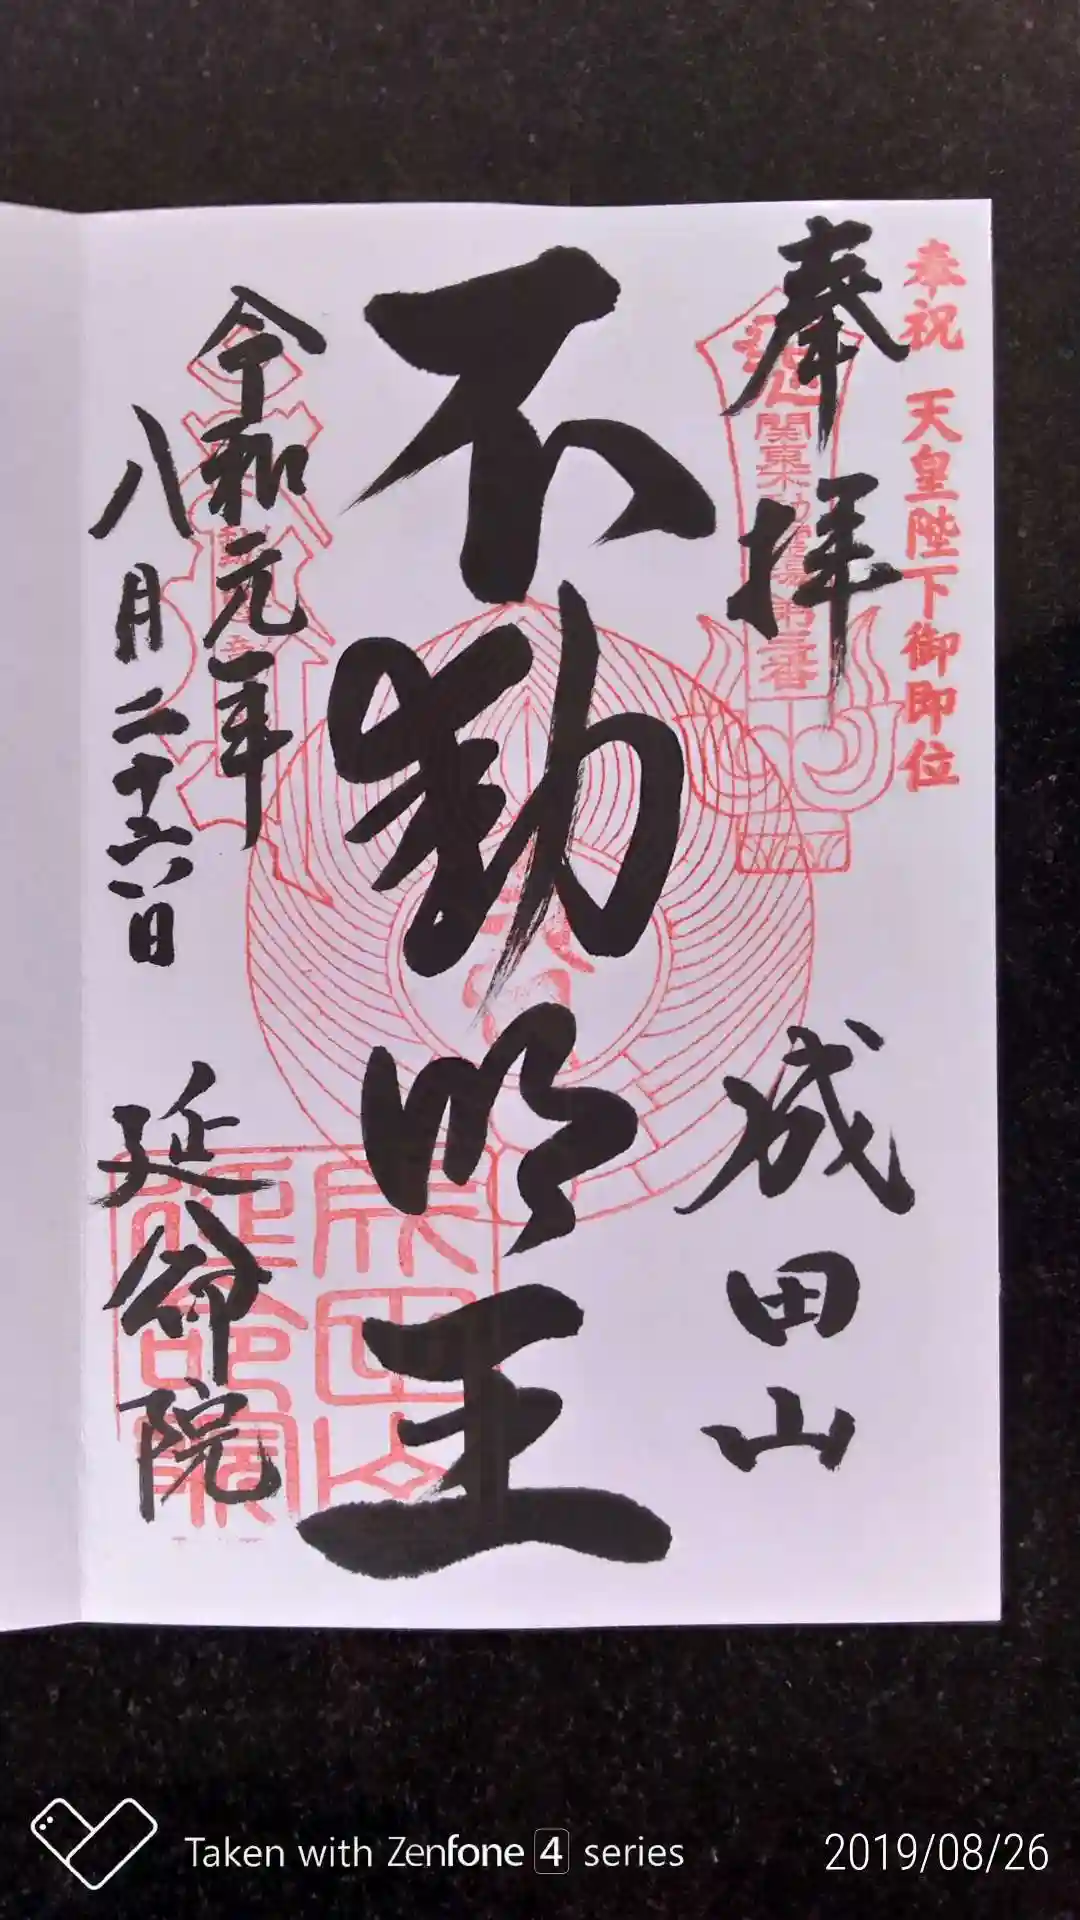 奉祝 天皇陛下御即位
奉拝 成田山
関東不動霊場第三番
不動明王
令和元年
八月二十六日
延命院
成田山
延命院
Taken with Zenfone 4 series
2019/08/26